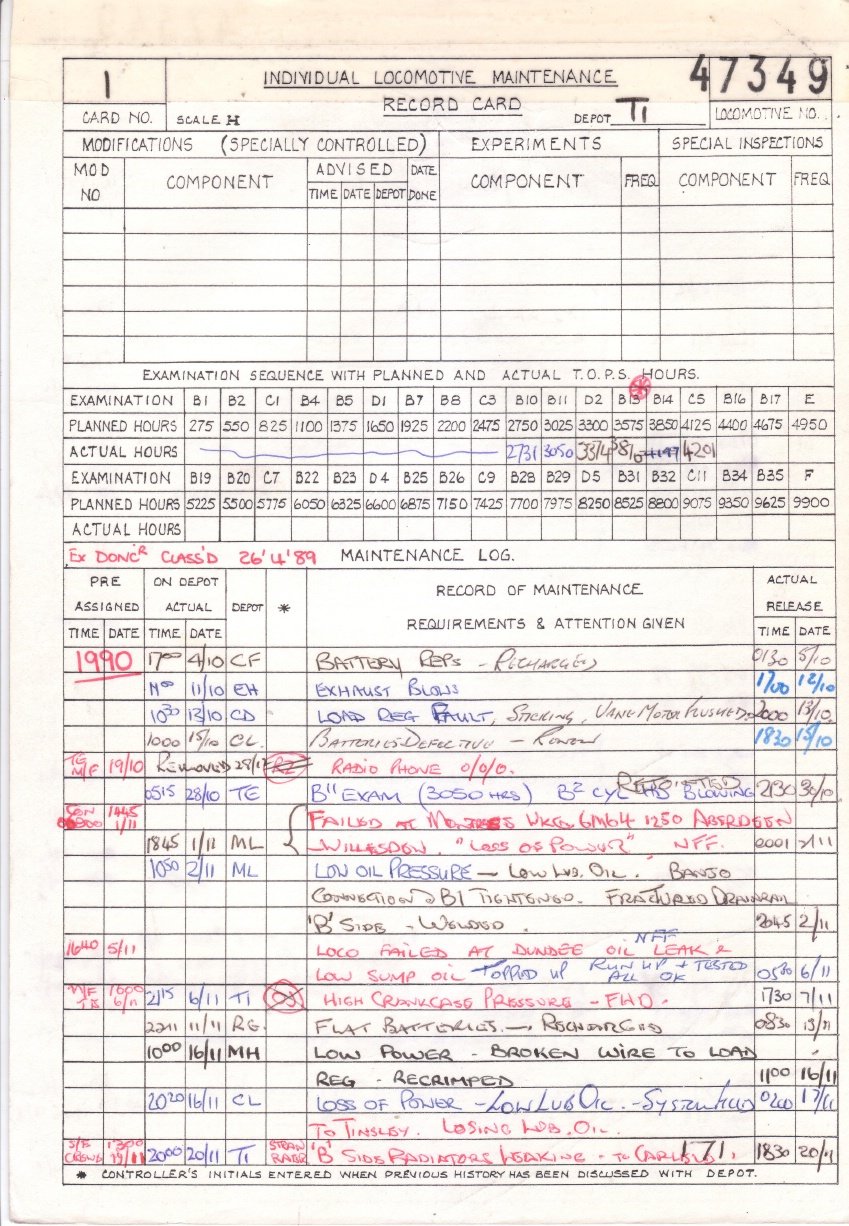 1 INDIVIDUAL LOCOMOTIVE MAINTENANCE 47349
RECORD CARD
CARD NO. SCALE H DEPOT TI LOCOMOTIVE NO.
MODIFICATIONS (SPECIALLY CONTROLLED) EXPERIMENTS SPECIAL INSPECTIONS
MOD NO COMPONENT ADVISED DATE DONE COMPONENT FREQ COMPONENT FREQ
TIME DATE DEPOT
EXAMINATION SEQUENCE WITH PLANNED AND ACTUAL T.O.P.S. HOURS.
EXAMINATION B1 B2 C1 B4 B5 D1 B7 B8 C3 B10 B11 D2 B13 B14 C5 B16 B17 E
PLANNED HOURS 275 550 825 1100 1375 1650 1925 2200 2475 2750 3025 3300 3575 3850 4125 4400 4675 4950
ACTUAL HOURS 2731 3050 3374 3810 4197 4201
EXAMINATION B19 B20 C7 B22 B23 D4 B25 B26 C9 B28 B29 D5 B31 B32 C11 B34 B35 F
PLANNED HOURS 5225 5500 5775 6050 6325 6600 6875 7150 7425 7700 7975 8250 8525 8800 9075 9350 9625 9900
ACTUAL HOURS
EX DONC'R CLASS'D 26'4'89 MAINTENANCE LOG.
PRE ASSIGNED ON DEPOT ACTUAL DEPOT * RECORD OF MAINTENANCE ACTUAL RELEASE
REQUIREMENTS & ATTENTION GIVEN
TIME DATE TIME DATE TIME DATE
1990 1700 4/10 CF BATTERY REPS - RECHARGED 0130 5/10
11/10 EH EXHAUST BLOWS 1700 12/10
1030 13/10 CD LOAD REG FAULT, STICKING, VANE MOTOR FLUSHED 2000 13/10
1000 15/10 CL. BATTERIES DEFECTIVE - 1830 15/10
M/F 19/10 REMOVED RADIO PHONE O/O/O.
0515 28/10 TE B11 EXAM (3050 HRS) B2 CYL HD BLOWING 2130 30/10
1445 1/11 FAILED AT MONTROSE WKG 6M64 1250 ABERDEEN
1845 1/11 ML WILLESDEN. "LOSS OF POWER" NFF. 0001 2/11
1050 2/11 ML LOW OIL PRESSURE - LOW LUB. OIL. BANJO
CONNECTION @ B1 TIGHTENED. FRACTURED DRAINRAIL
'B' SIDE - WELDED. 2045 2/11
1640 5/11 LOCO FAILED AT DUNDEE OIL LEAK & NFF
LOW SUMP OIL TOPPED UP RUN UP + TESTED ALL OK 0530 6/11
1600 6/11 2115 6/11 TI HIGH CRANKCASE PRESSURE - FWD. 1730 7/11
11/11 RG. FLAT BATTERIES - RECHARGED 0830 13/11
1000 16/11 MH LOW POWER - BROKEN WIRE TO LOAD
REG - RECRIMPED 1100 16/11
2020 16/11 CL LOSS OF POWER - LOW LUB OIL. - SYSTEM 0200 17/11
TO TINSLEY. LOSING LUB. OIL.
1300 19/11 2000 20/11 TI 'B' SIDE RADIATORS LEAKING - TO 171 1830 20/11
* CONTROLLER'S INITIALS ENTERED WHEN PREVIOUS HISTORY HAS BEEN DISCUSSED WITH DEPOT.